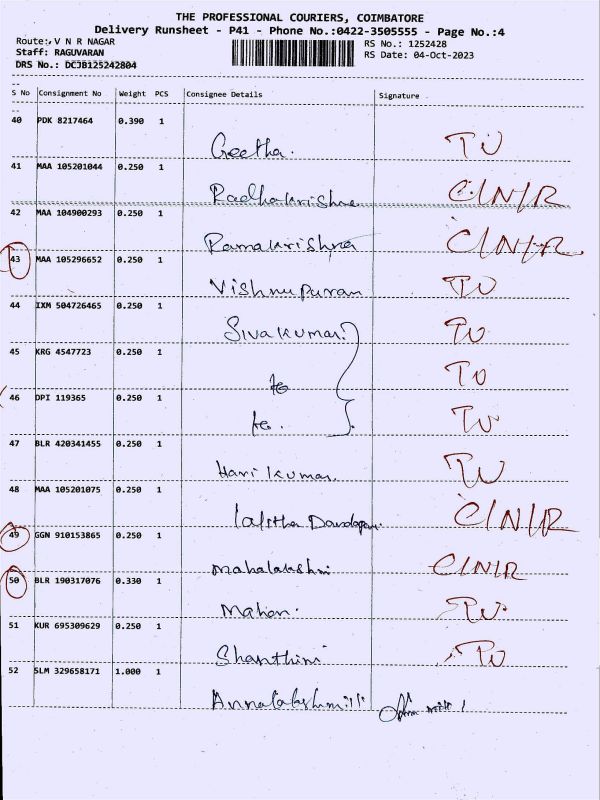 THE PROFESSIONAL COURIERS, COIMBATORE
Delivery Runsheet - P41 - Phone No.:0422-3505555 - Page No.:4
Route:, V N R NAGAR
RS No.: 1252428
Staff: RAGUVARAN
RS Date: 04-Oct-2023
DRS No.: DCJB125242804
S No Consignment No Weight PCS Consignee Details Signature
40 PDK 8217464 0.390 1
Geetha. TU
41 MAA 105201044 0.250 1
Radhakrishna C/N/R
42 MAA 104900293 0.250 1
Ramakrishna C/N/R
43 MAA 105296652 0.250 1
Vishnupuran TU
44 IXM 504726465 0.250 1
Sivakumar. TU
45 KRG 4547723 0.250 1
to TU
46 DPI 119365 0.250 1
to. TU
47 BLR 420341455 0.250 1
Hari Kumar. TU
48 MAA 105201075 0.250 1
Lalitha C/N/R
49 GGN 910153865 0.250 1
Mahalakshmi C/N/R
50 BLR 190317076 0.330 1
Mahan. TU
51 KUR 695309629 0.250 1
Shanthini TU
52 SLM 329658171 1.000 1